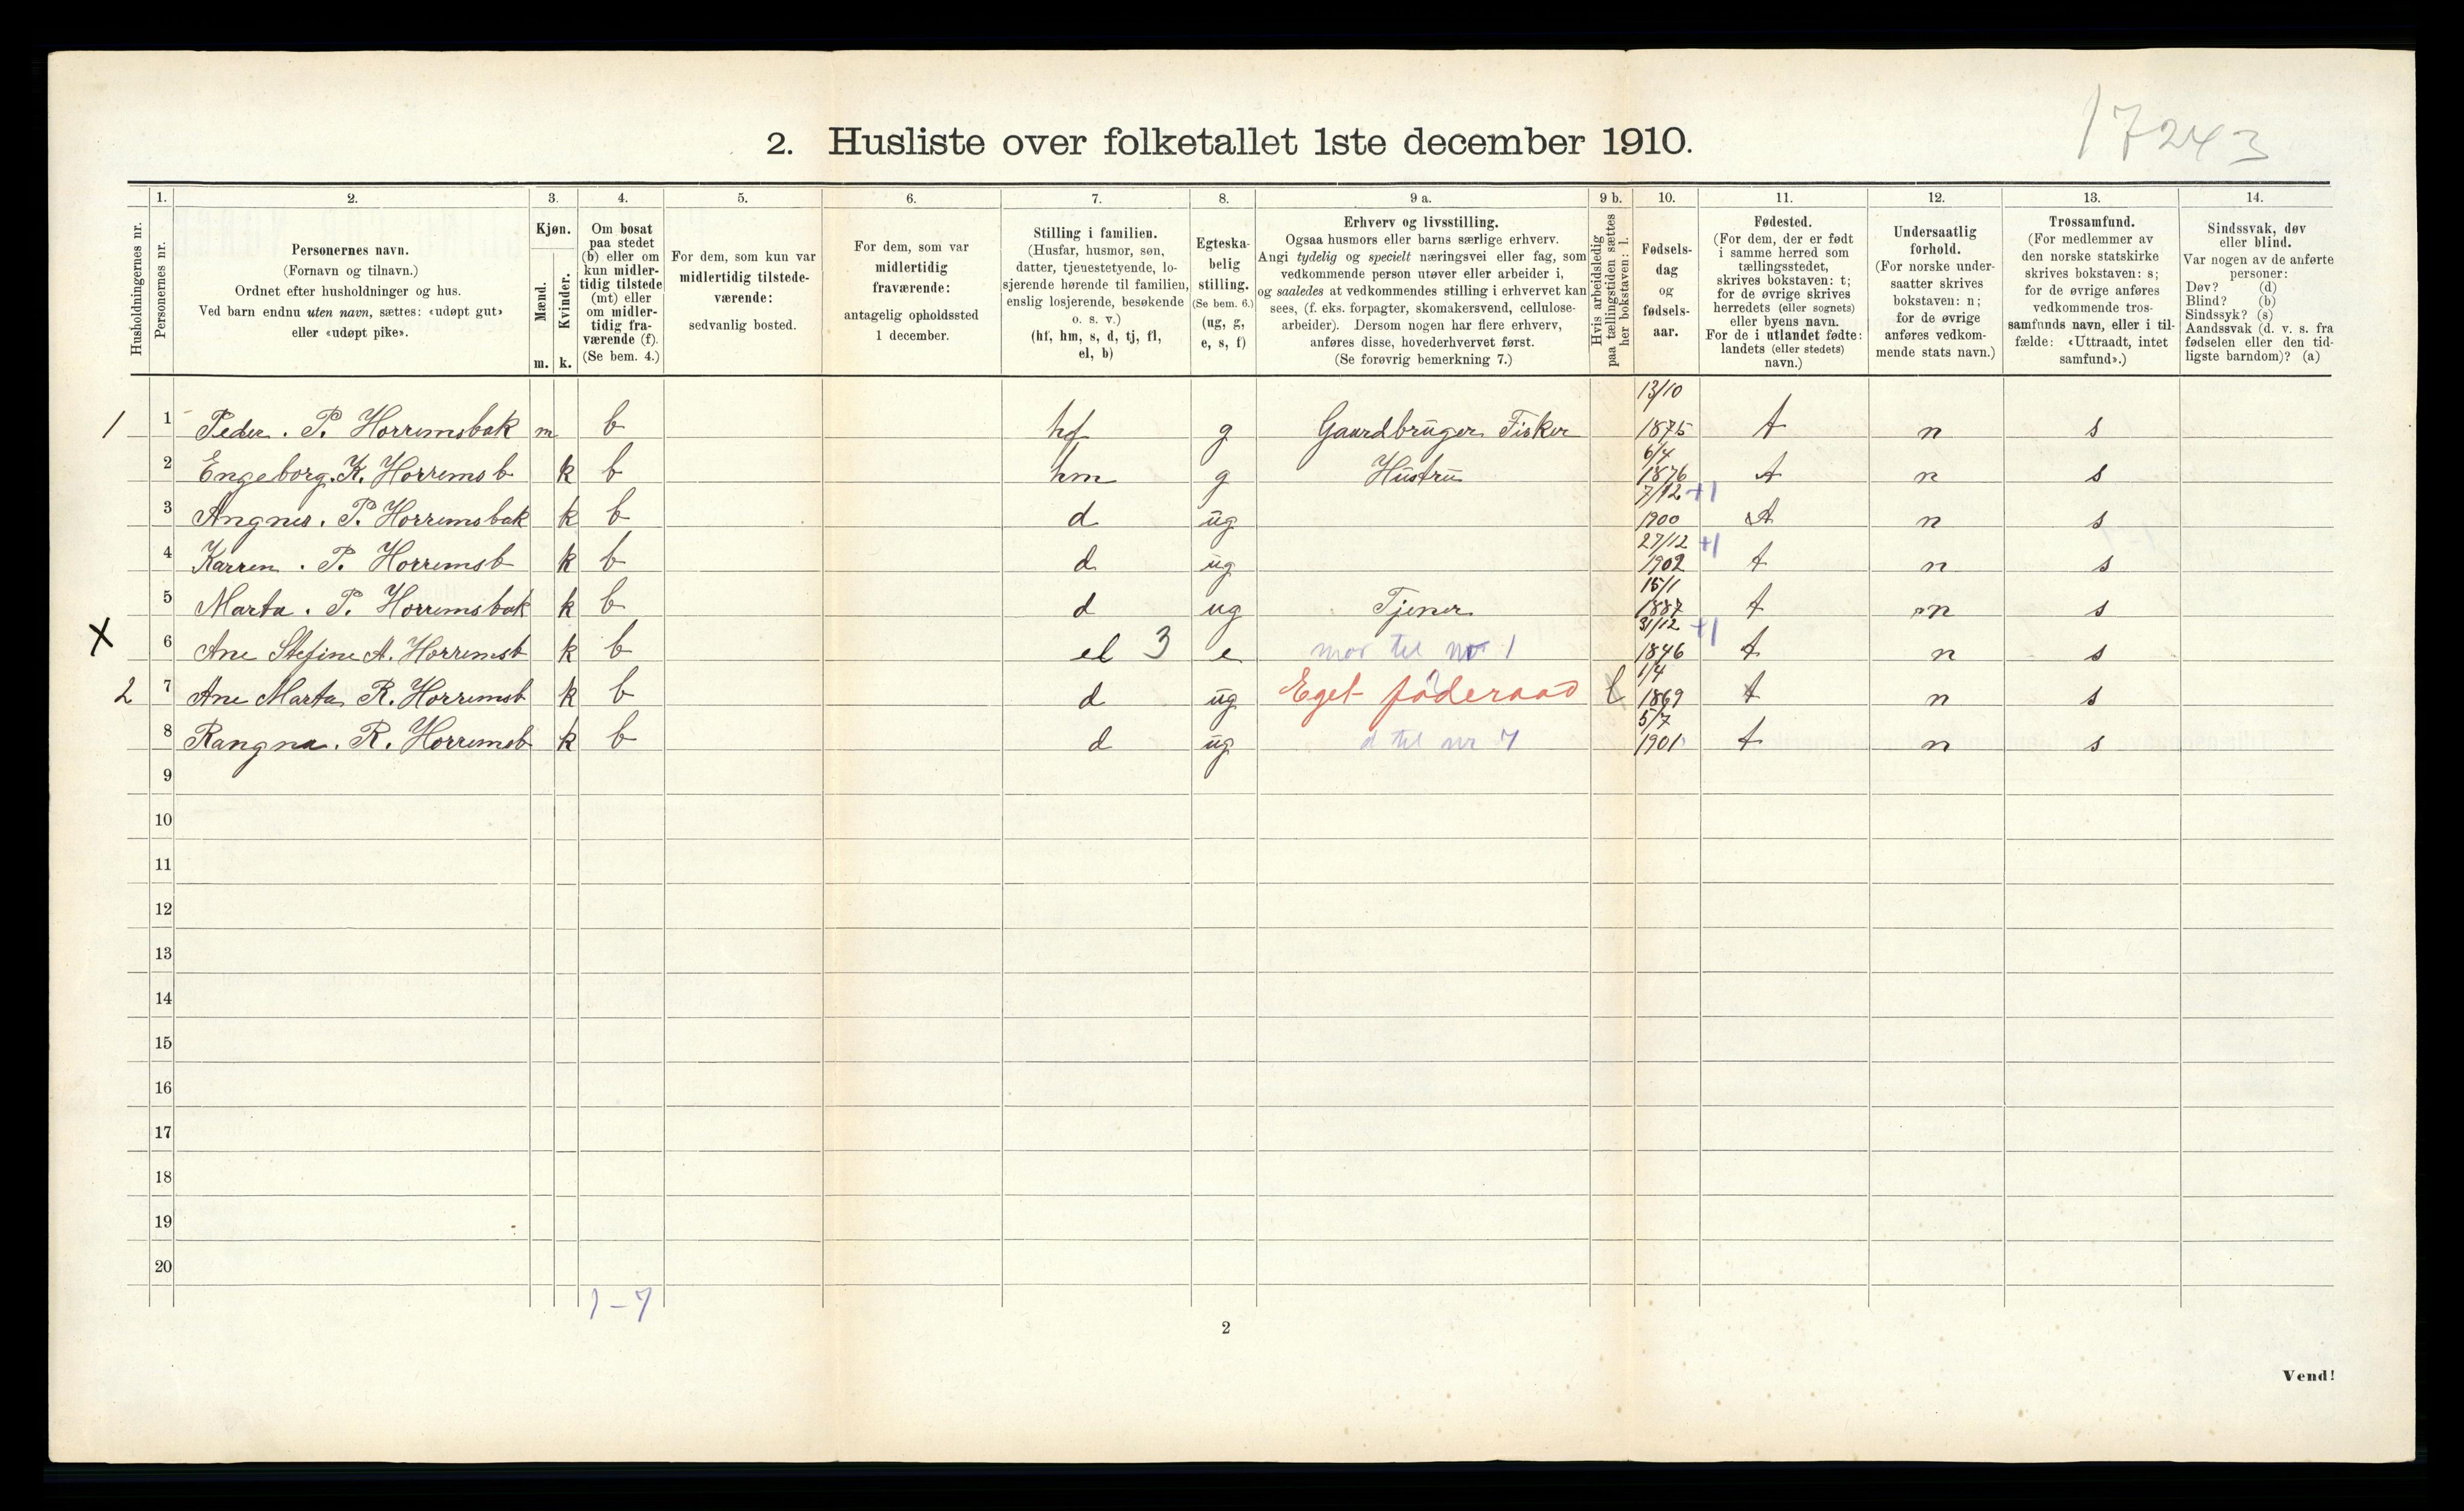 17243
2. Husliste over folketallet 1ste december 1910.
Husholdningernes nr.
1.
Personernes nr.
2.
Personernes navn.
(Fornavn og tilnavn.)
Ordnet efter husholdninger og hus.
Ved barn endnu uten navn, sættes: «udøpt gut»
eller «udøpt pike».
3.
Kjøn.
Mænd.
m.
Kvinder.
k.
4.
Om bosat
paa stedet
(b) eller om
kun midler-
tidig tilstede
(mt) eller
om midler-
tidig fra-
værende (f).
(Se bem. 4.)
5.
For dem, som kun var
midlertidig tilstede-
værende:
sedvanlig bosted.
6.
For dem, som var
midlertidig
fraværende:
antagelig opholdssted
1 december.
7.
Stilling i familien.
(Husfar, husmor, søn,
datter, tjenestetyende, lo-
sjerende hørende til familien,
enslig losjerende, besøkende
o. s. v.)
(hf, hm, s, d, tj, fl,
el, b)
8.
Egteska-
belig
stilling.
(Se bem. 6.)
(ug, g,
e, s, f)
9 a.
Erhverv og livsstilling.
Ogsaa husmors eller barns særlige erhverv.
Angi tydelig og specielt næringsvei eller fag, som
vedkommende person utøver eller arbeider i,
og saaledes at vedkommendes stilling i erhvervet kan
sees, (f. eks. forpagter, skomakersvend, cellulose-
arbeider). Dersom nogen har flere erhverv,
anføres disse, hovederhvervet først.
(Se forøvrig bemerkning 7.)
9 b.
Hvis arbeidsledig
paa tællingstiden sættes
her bokstaven: l.
10.
Fødsels-
dag
og
fødsels-
aar.
11.
Fødested.
(For dem, der er født
i samme herred som
tællingsstedet,
skrives bokstaven: t;
for de øvrige skrives
herredets (eller sognets)
eller byens navn.
For de i utlandet fødte:
landets (eller stedets)
navn.)
12.
Undersaatlig
forhold.
(For norske under-
saatter skrives
bokstaven: n;
for de øvrige
anføres vedkom-
mende stats navn.)
13.
Trossamfund.
(For medlemmer av
den norske statskirke
skrives bokstaven: s;
for de øvrige anføres
vedkommende tros-
samfunds navn, eller i til-
fælde: «Uttraadt, intet
samfund».)
14.
Sindssvak, døv
eller blind.
Var nogen av de anførte
personer:
Døv? (d)
Blind? (b)
Sindssyk? (s)
Aandssvak (d. v. s. fra
fødselen eller den tid-
ligste barndom)? (a)
1 1 Peder. P. Horremsbak m b hf g Gaardbruger Fisker 13/10 1875 t n s
2 Engeborg. K. Horremsb k b hm g Hustru 6/4 1876 t n s
3 Angnes. P. Horremsbak k b d ug 7/12 +1 1900 t n s
4 Karren. P. Horremsb k b d ug 27/12 +1 1902 t n s
5 Marta. P. Horremsbak k b d ug Tjener 15/1 1887 t n s
X 6 Ane Stefine A. Horremsb k b el 3 e mor til nr 1 31/12 +1 1846 t n s
2 7 Ane Marta R. Horremsb k b d ug Eget føderaad l 1/4 1869 t n s
8 Rangna. R. Horremsb k b d ug d til nr 7 5/7 1901 t n s
9
10
11
12
13
14
15
16
17
18
19
20
1-7
2
Vend!